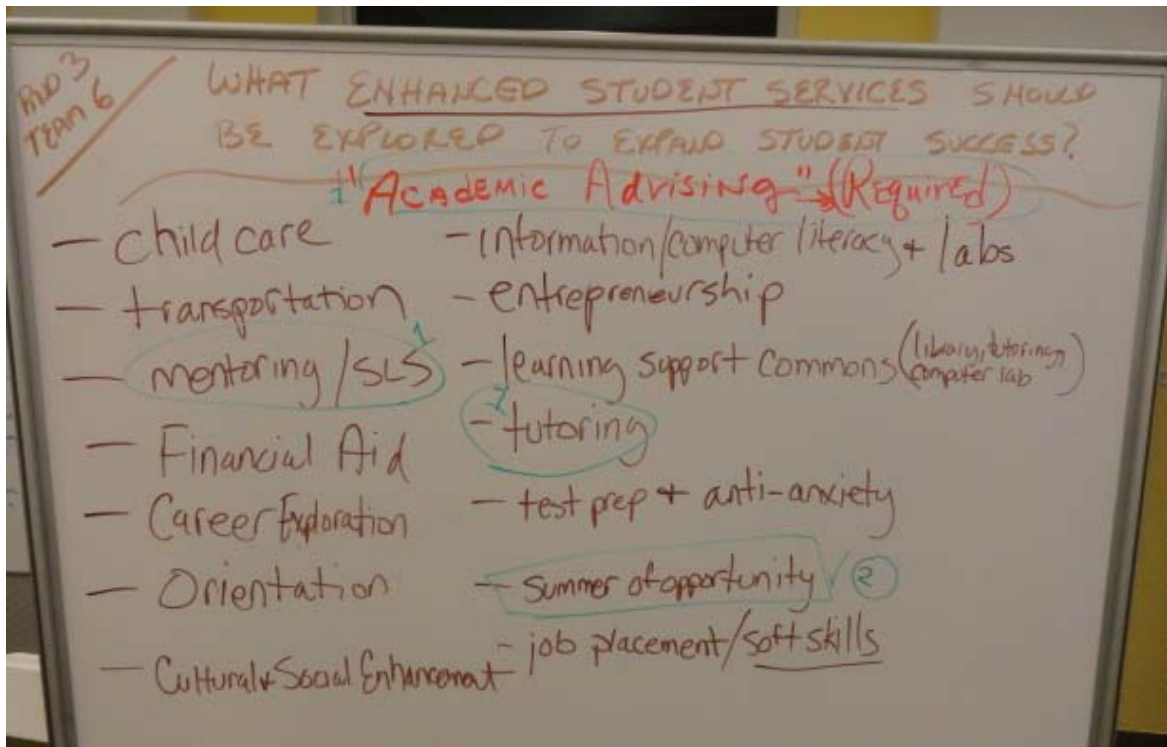 RND 3
TEAM 6
WHAT ENHANCED STUDENT SERVICES SHOULD
BE EXPLORED TO EXPAND STUDENT SUCCESS?
1 "Academic Advising" → (Required)
— Child care
— transportation
— mentoring / SLS 1
— Financial Aid
— Career Exploration
— Orientation
— Cultural & Social Enhancement
- information/computer literacy + labs
- entrepreneurship
- learning support commons (library, tutoring, computer lab)
1 - tutoring
- test prep + anti-anxiety
- summer of opportunity ✓ 2
- job placement/soft skills